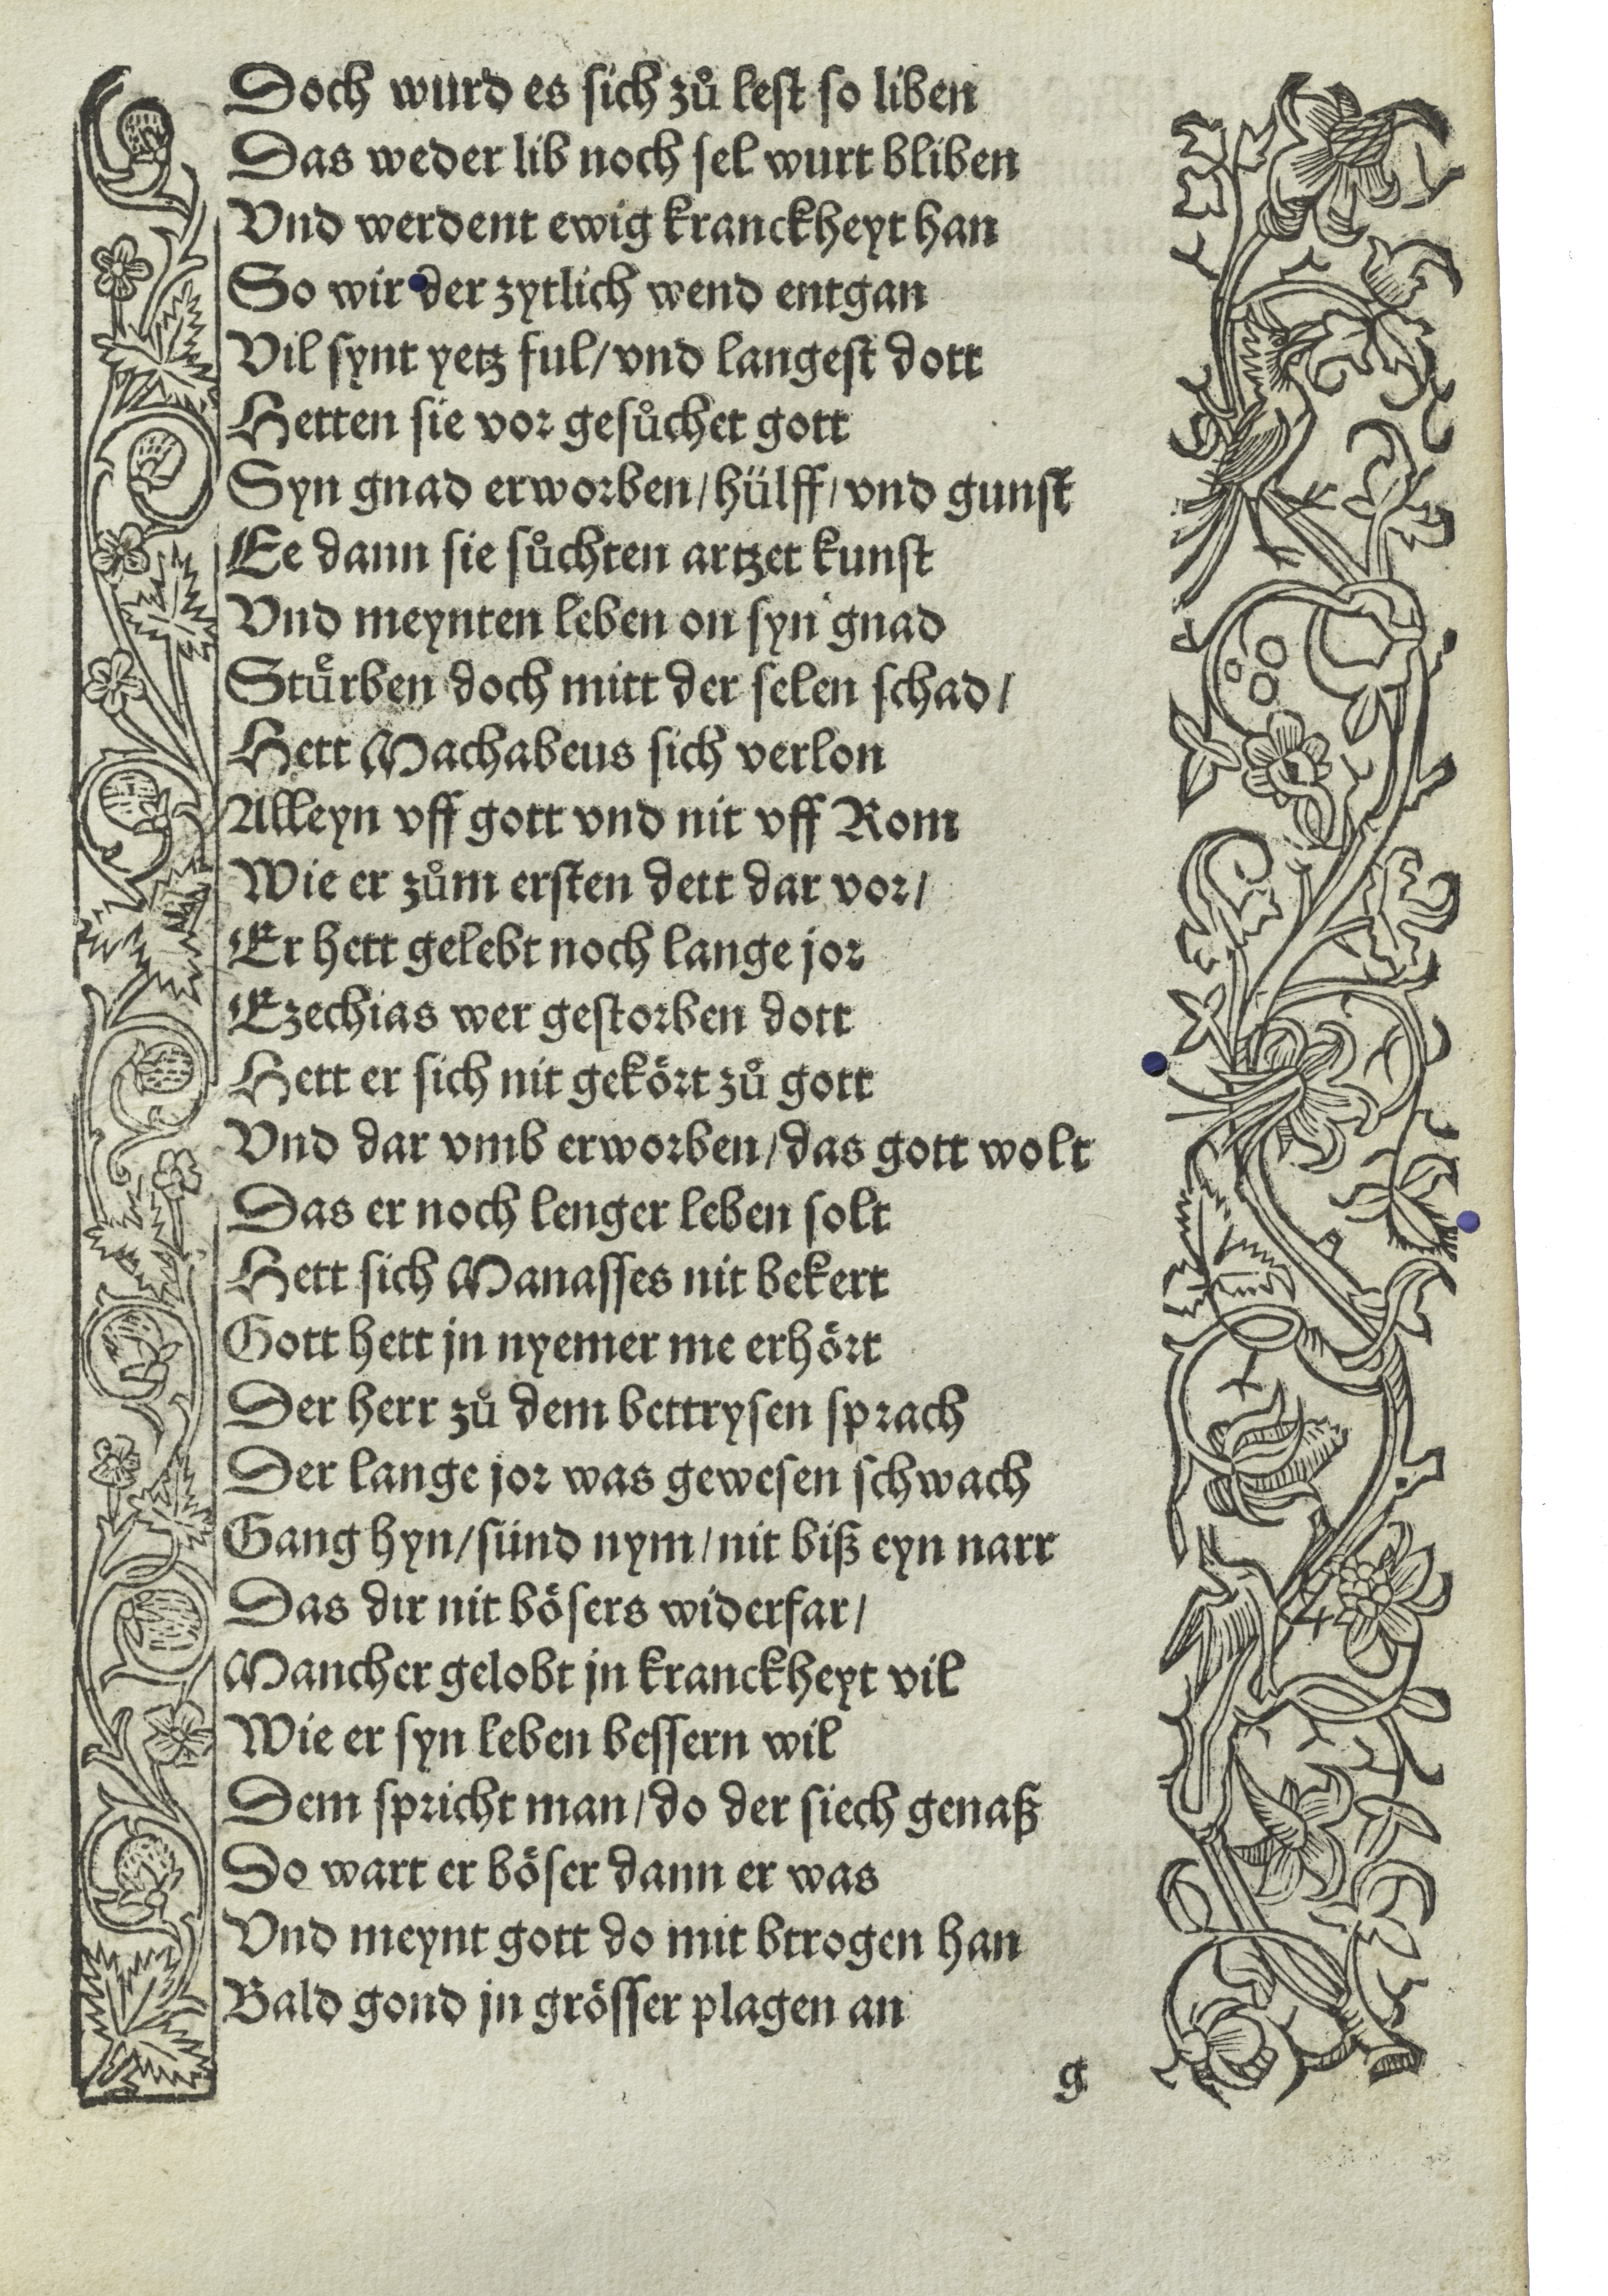 Doch wurd es sich zuͦ lest so liben
Das weder lib noch sel wurt bliben
Vnd werdent ewig kranckheyt han
So wir der zytlich wend entgan
Vil synt yetz ful/vnd langest dott
Hetten sie vor gesuͦchet gott
Syn gnad erworben/hülff/vnd gunst
Ee dann sie suͦchten artzet kunst
Vnd meynten leben on syn gnad
Stuͤrben doch mitt der selen schad/
Hett Machabeus sich verlon
Alleyn vff gott vnd nit vff Rom
Wie er zuͦm ersten dett dar vor/
Er hett gelebt noch lange jor
Ezechias wer gestorben dott
Hett er sich nit gekört zuͦ gott
Vnd dar vmb erworben/das gott wolt
Das er noch lenger leben solt
Hett sich Manasses nit bekert
Gott hett jn nyemer me erhört
Der herr zuͦ dem bettrysen sprach
Der lange jor was gewesen schwach
Gang hyn/sünd nym/nit biß eyn narr
Das dir nit bösers widerfar/
Mancher gelobt jn kranckheyt vil
Wie er syn leben bessern wil
Dem spricht man/do der siech genaß
Do wart er böser dann er was
Vnd meynt gott do mit btrogen han
Bald gond jn grösser plagen an
g